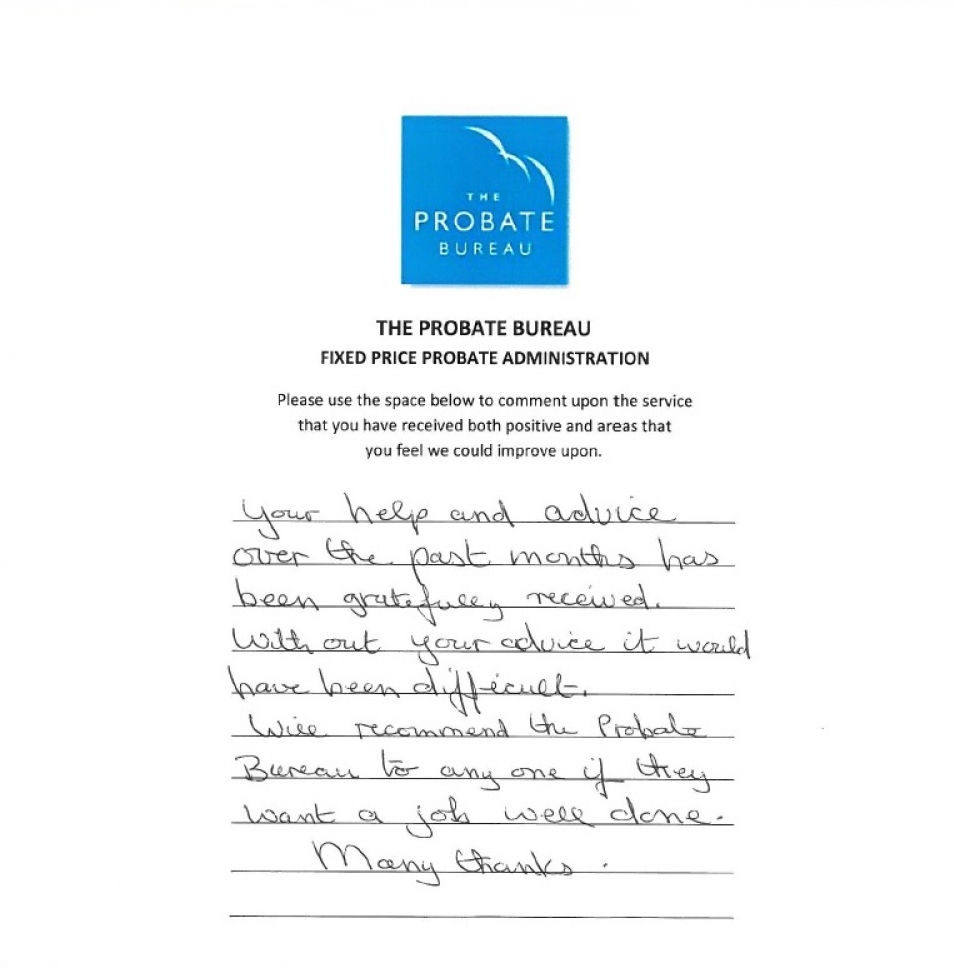 THE
PROBATE
BUREAU
THE PROBATE BUREAU
FIXED PRICE PROBATE ADMINISTRATION
Please use the space below to comment upon the service
that you have received both positive and areas that
you feel we could improve upon.
Your help and advice
over the past months has
been gratefully received.
With out your advice it would
have been difficult.
Will recommend the Probate
Bureau to any one if they
want a job well done.
Many thanks.